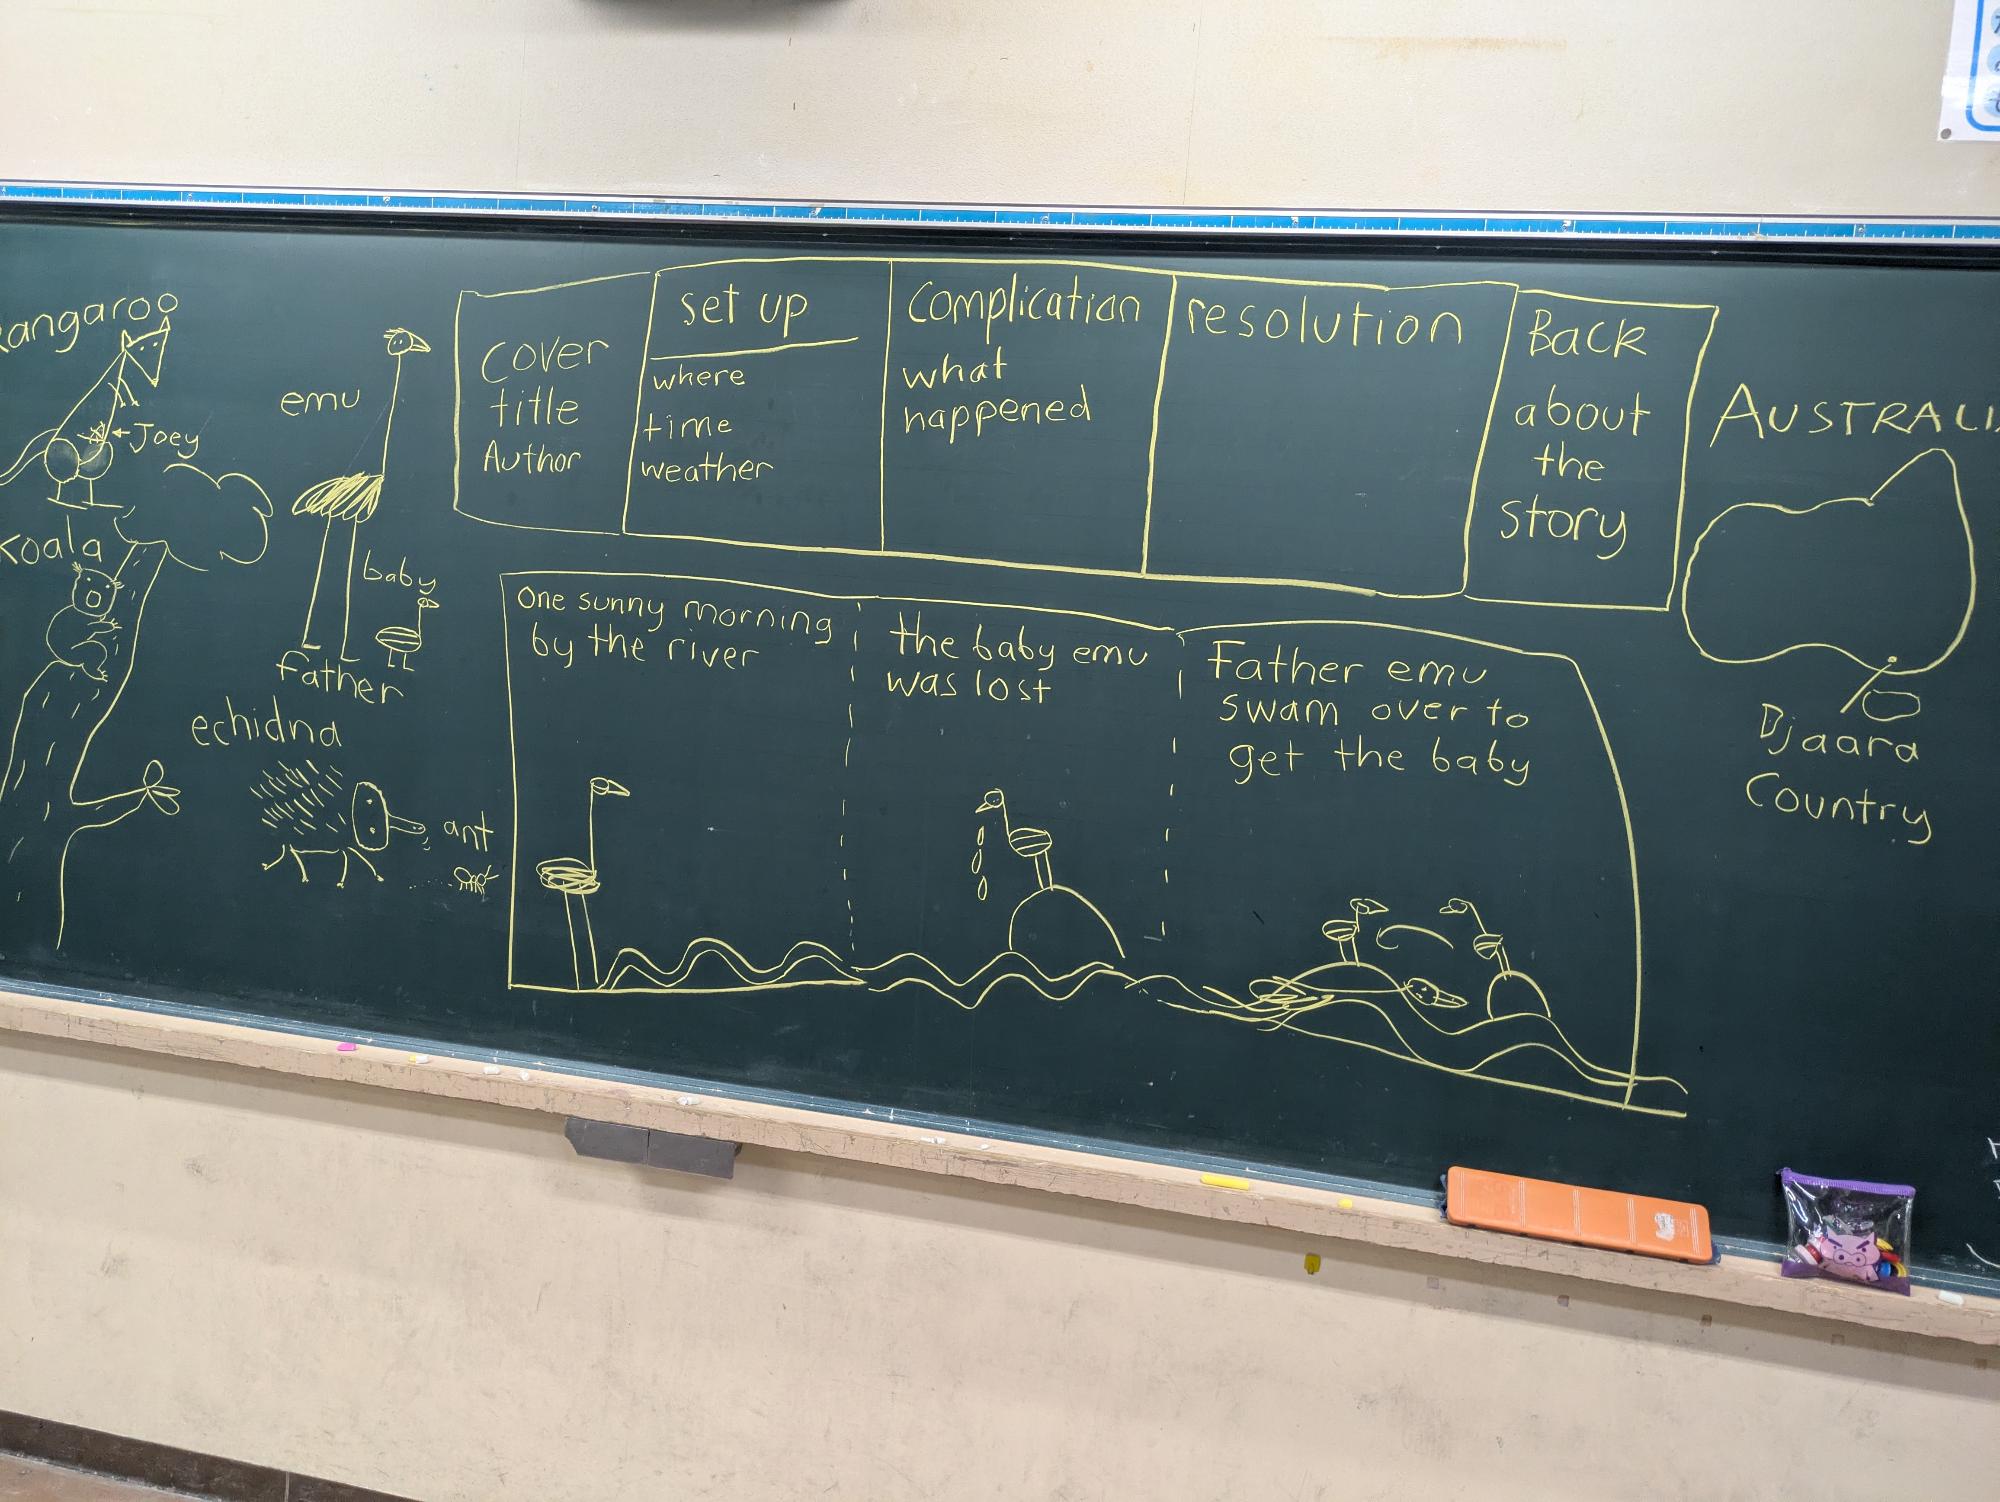 Kangaroo
Joey
Koala
emu
baby
father
echidna
ant
cover
title
Author
set up
where
time
weather
Complication
what
happened
resolution
Back
about
the
story
One sunny morning
by the river
the baby emu
was lost
Father emu
swam over to
get the baby
AUSTRALIA
Djaara
Country